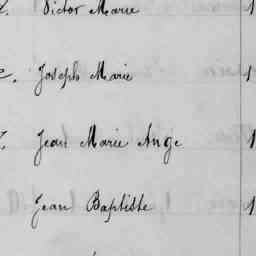 Victor Marie 1
Joseph Marie 1
Jean Marie Ange 1
Jean Baptiste 1